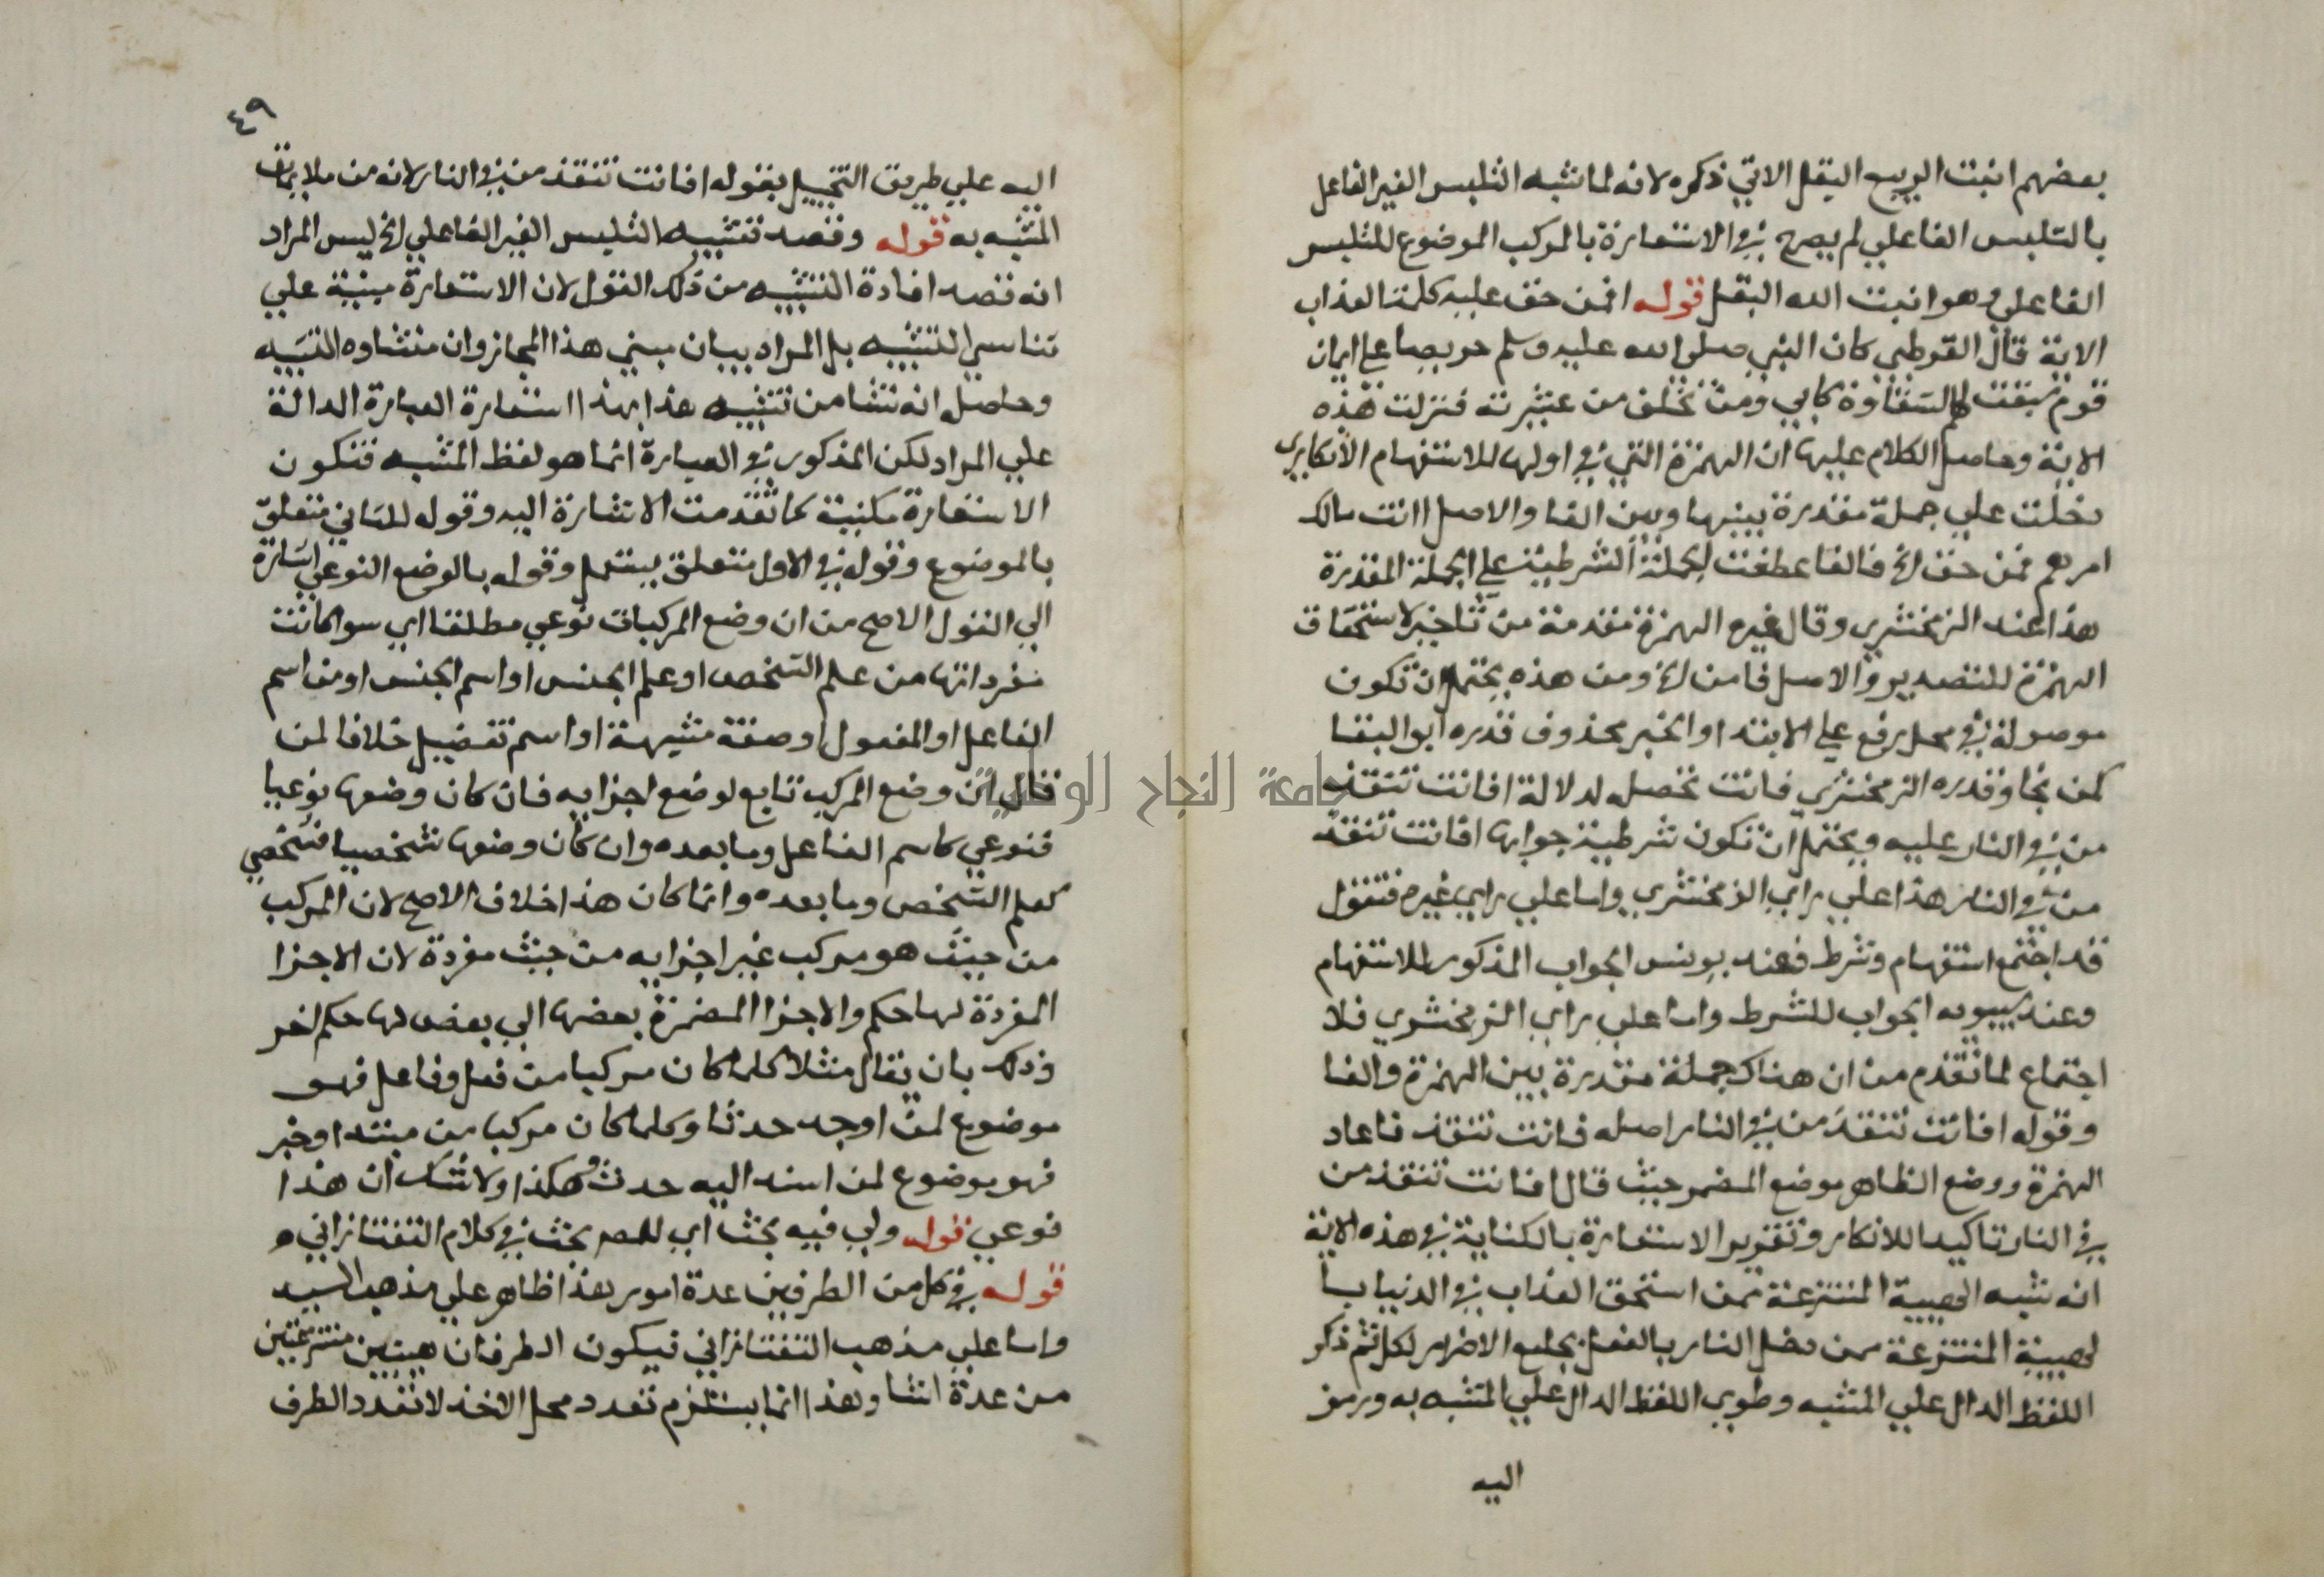 بعضهم انبت الربيع البقل الاتي ذكره لانه لما شبه التلبس الغير الفاعلي
بالتلبس الفاعلي لم يصرح في الاستعارة بالمركب الموضوع للتلبس
الفاعلي وهو انبت الله البقل قوله افمن حق عليه كلمة العذاب
الاية قال القرطبي كان النبي صلى الله عليه وسلم حريصا على ايمان
قوم سبقت لهم الشقاوة كابي ومن تخلف من عشيرته فنزلت هذه
الاية وحاصل الكلام عليها ان الهمزة التي في اولها للاستفهام الانكاري
دخلت على جملة مقدرة بينها وبين الفا والاصل اانت مالك
امرهم فمن حق الخ فالفا عطفت الجملة الشرطية على الجملة المقدرة
هذا عند الزمخشري وقال غيره الهمزة مقدمة من تاخير لاستحقاق
الهمزة للتصدير والاصل فامن الخ ومن هذه يحتمل ان تكون
موصولة في محل رفع على الابتدا والخبر محذوف قدره ابو البقا
كمن نجا وقدره الزمخشري فانت تخصله لدلالة افانت تنقذ
من في النار عليه ويحتمل ان تكون شرطية جوابها افانت تنقذ
من في النار هذا على راي الزمخشري واما على راي غيره فتقول
قد اجتمع استفهام وشرط فعند يونس الجواب المذكور للاستفهام
وعند سيبويه الجواب للشرط واما على راي الزمخشري فلا
اجتماع لما تقدم من ان هناك جملة مقدرة بين الهمزة والفا
وقوله افانت تنقذ من في النار اصله فانت تنقذ فاعاد
الهمزة ووضع الظاهر موضع المضمر حيث قال افانت تنقذ من
في النار تاكيدا للانكار وتقرير الاستعارة بالكناية في هذه الاية
انه شبه الهيية المنتزعة ممن استحق العذاب في الدنيا با
لهيية المنتزعة ممن دخل النار بالفعل بجامع الاضرار لكل ثم ذكر
اللفظ الدال على المشبه وطوى اللفظ الدال على المشبه به ورمز
اليه
٤٩
اليه على طريق التخييل بقوله افانت تنقذ من في النار لانه من ملايمات
المشبه به قوله وقصد تشبيه التلبس الغير الفاعلي الخ ليس المراد
انه قصد افادة التشبيه من ذلك القول لان الاستعارة مبنية على
تناسي التشبيه بل المراد بيان مبني هذا المجاز وان منشاوه التشبيه
وحاصل انه نشا من تشبيه هذا بهذا استعارة العبارة الدالة
على المراد لكن المذكور في العبارة انما هو لفظ المشبه فتكون
الاستعارة مكنية كما تقدمت الاشارة اليه وقوله للثاني متعلق
بالموضوع وقوله في الاول متعلق بيستعمل وقوله بالوضع النوعي اشارة
الى القول الاصح من ان وضع المركبات نوعي مطلقا اي سوا كانت
مفرداتها من علم الشخص او علم الجنس او اسم الجنس او من اسم
الفاعل او المفعول او صفة مشبهة او اسم تفضيل خلافا لمن
قال ان وضع المركب تابع لوضع اجزايه فان كان وضعها نوعيا
فنوعي كاسم الفاعل وما بعده وان كان وضعها شخصيا فشخصي
كعلم الشخص وما بعده وانما كان هذا خلاف الاصح لان المركب
من حيث هو مركب غير اجزايه من حيث مفردة لان الاجزا
المفردة لها حكم والاجزا المضمرة بعضها الى بعض لها حكم اخر
وذلك بان يقال مثلا كلما كان مركبا من فعل وفاعل فهو
موضوع لمن اوجد حدثا وكلما كان مركبا من مبتدا وخبر
فهو موضوع لمن اسند اليه حدث وهكذا ولا شك ان هذا
نوعي قوله ولي فيه بحث اي للمص بحث في كلام التفتازاني
قوله في كل من الطرفين عدة امور هذا ظاهر على مذهب السيد
واما على مذهب التفتازاني فيكون الطرفان هيتين منتزعتين
من عدة اشيا وهذا انما يستلزم تعدد محل الاخذ لا تعدد الطرف
جامعة النجاح الوطنية